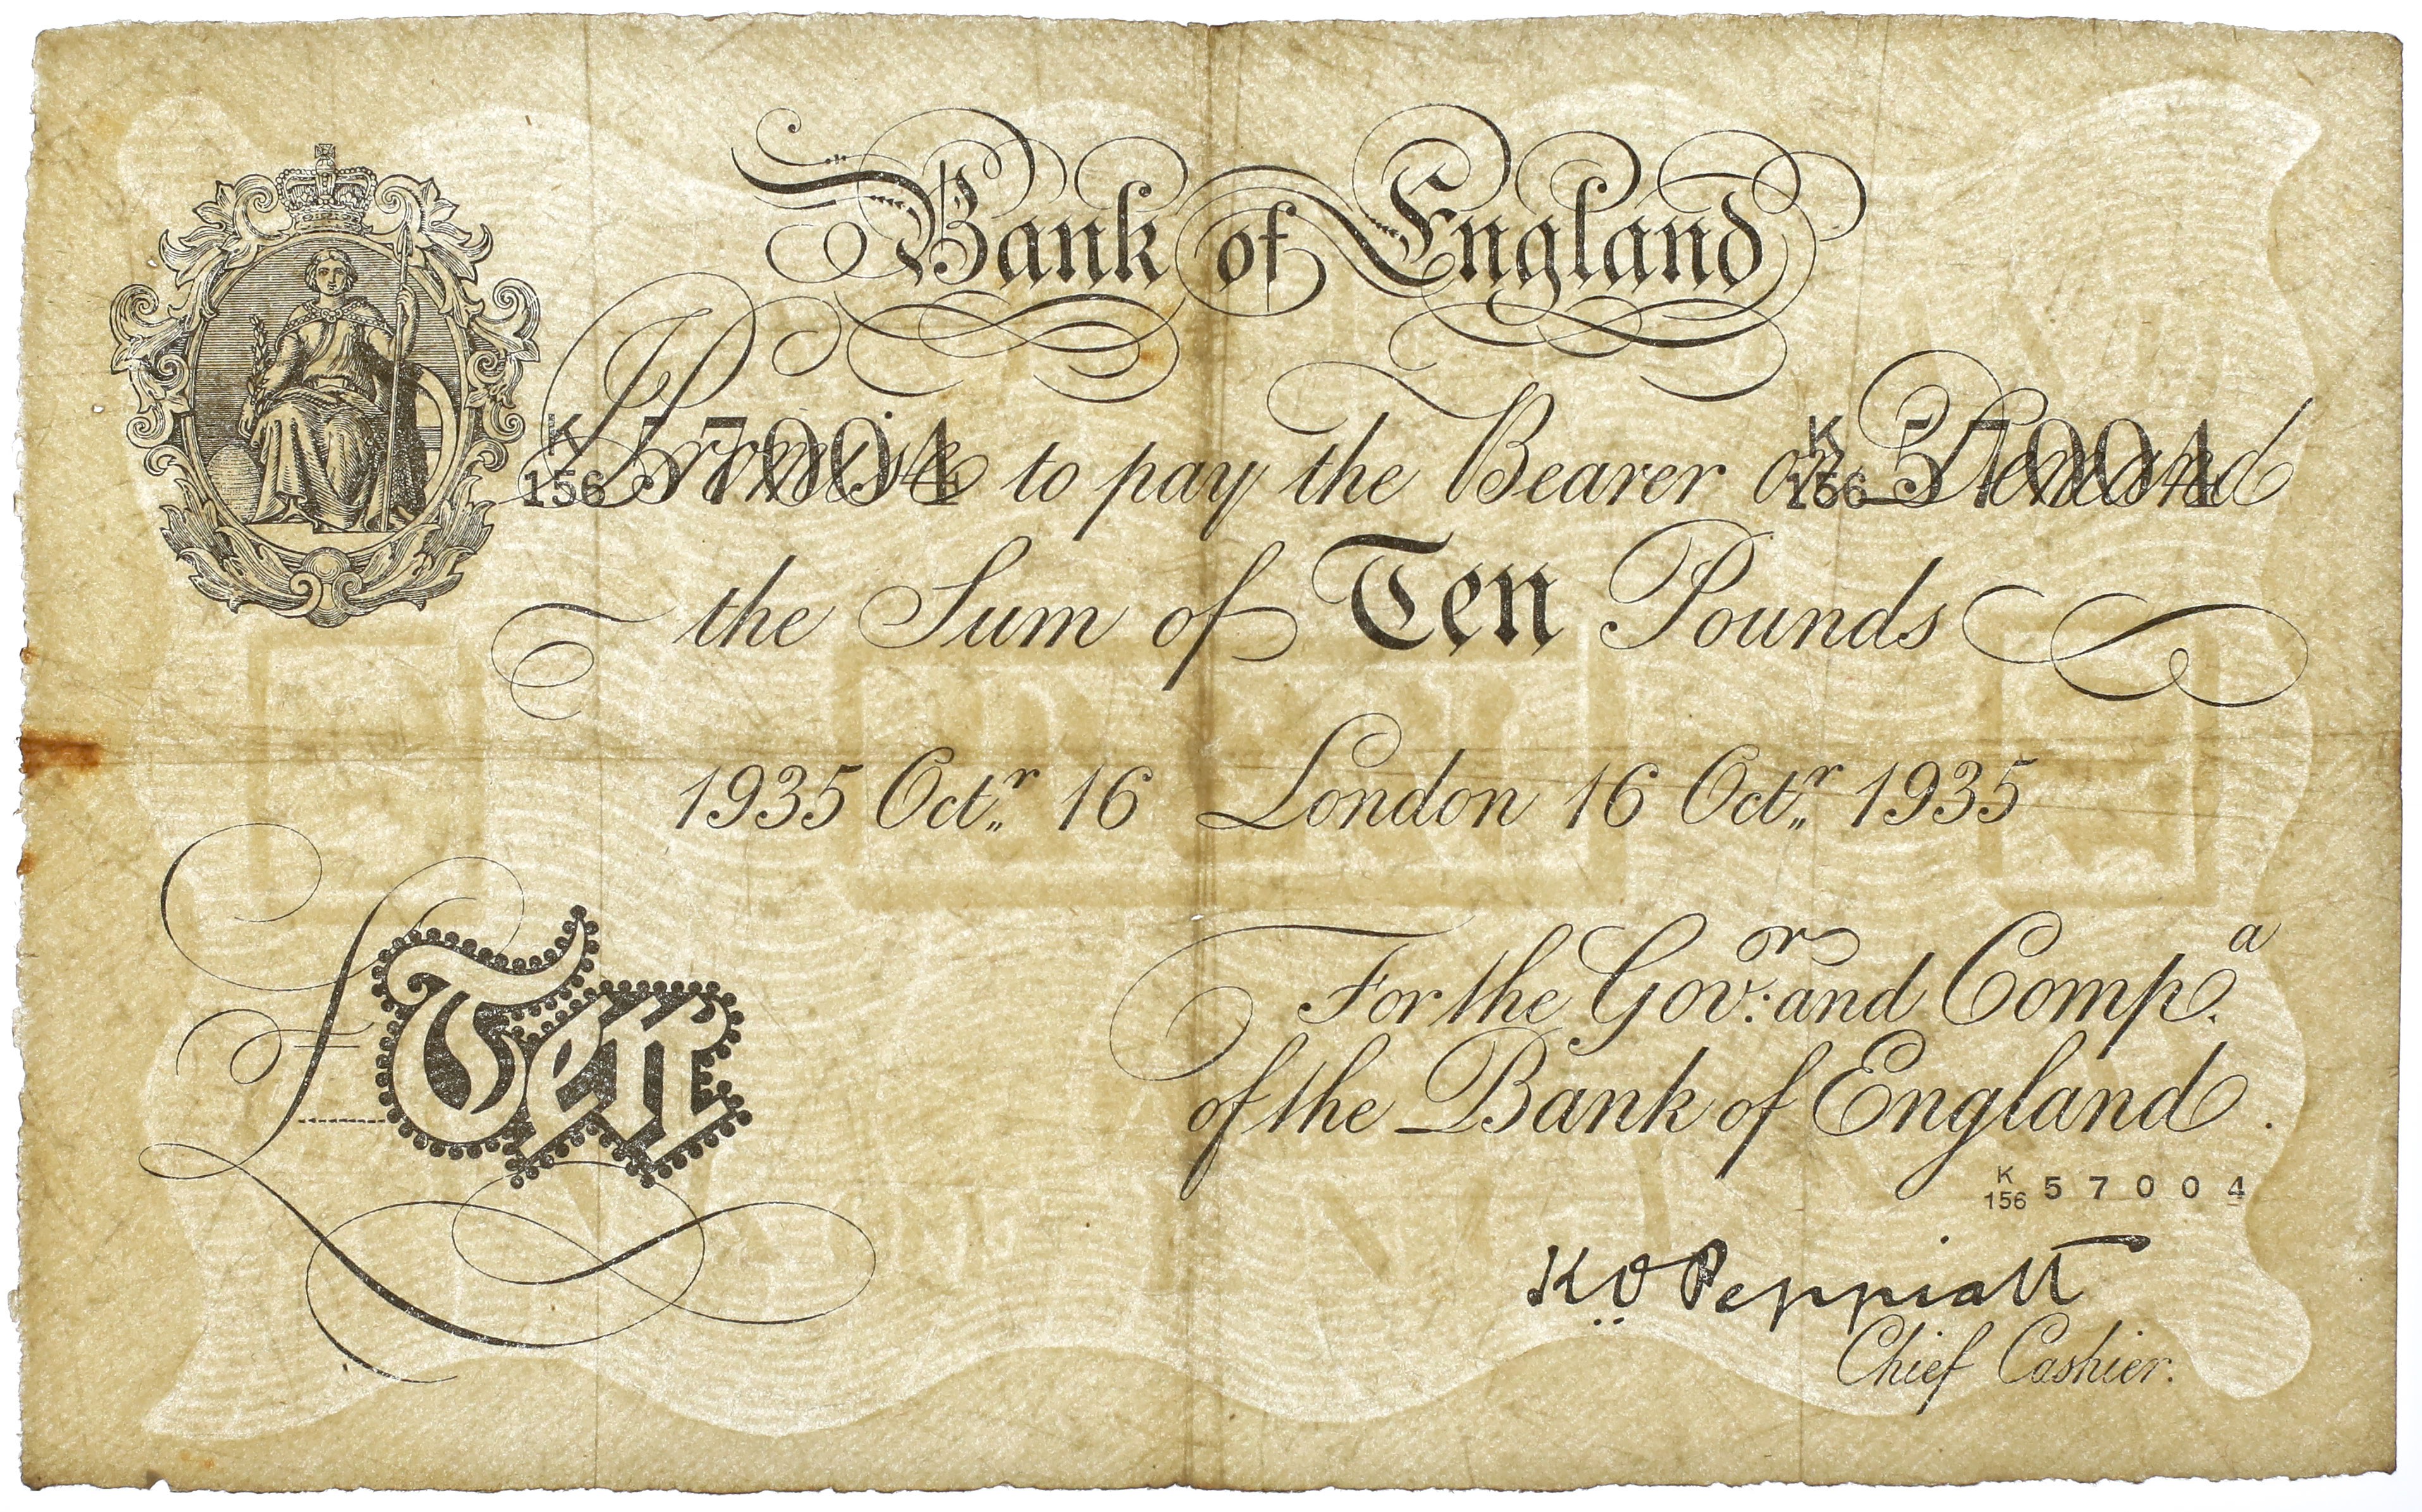 Bank of England
K
156 57004 K
156 57004
I Promise to pay the Bearer on Demand
the Sum of Ten Pounds
1935 Octr. 16 London 16 Octr. 1935
For the Govr: and Compa.
£Ten
of the Bank of England.
K
156 57004
K O Peppiatt
Chief Cashier.